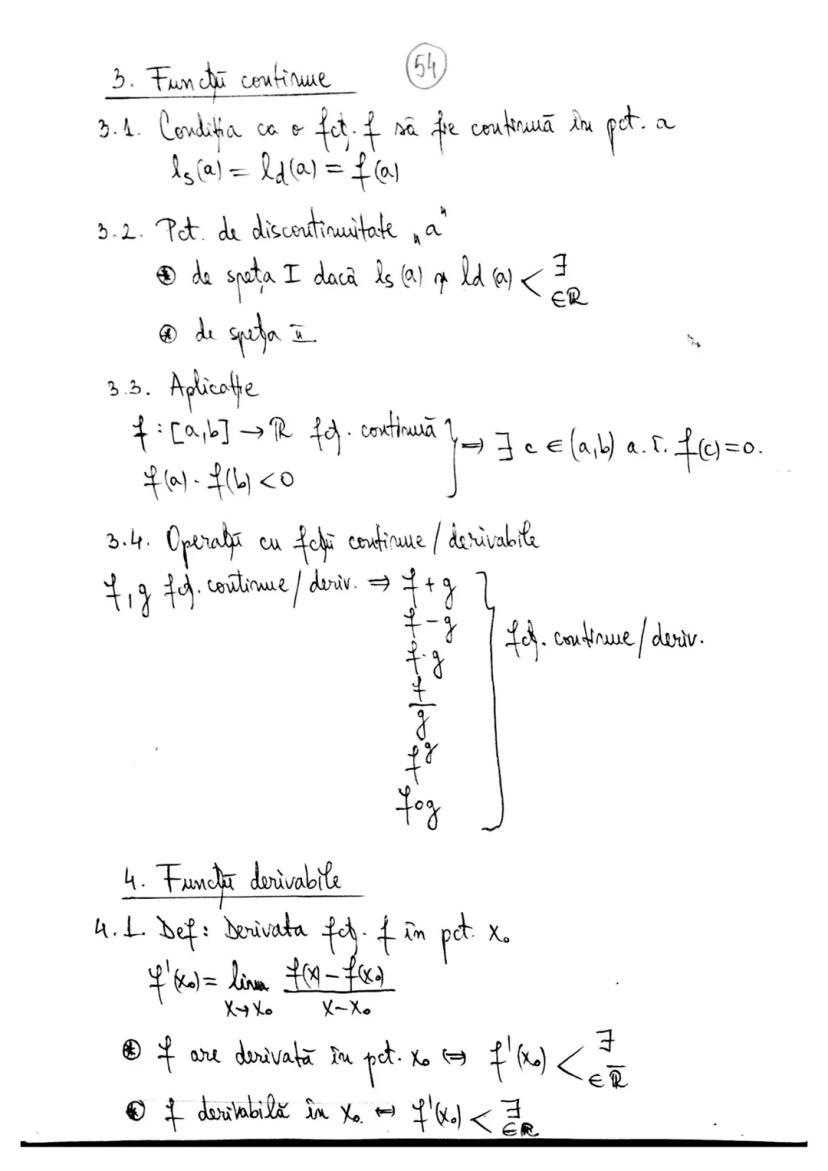 54
3. Funcții continue
3.1. Condiția ca o fcț. f să fie continuă în pct. a
ls(a) = ld(a) = f(a)
3.2. Pct. de discontinuitate „a"
⊛ de speța I dacă ls(a) și ld(a) < ∃ ∈ℝ
⊛ de speța II
3.3. Aplicație
f : [a,b] → ℝ fcț. continuă } ⇒ ∃ c ∈ (a,b) a.î. f(c)=0.
f(a) · f(b) < 0
3.4. Operații cu fcții continue / derivabile
f, g fcț. continue / deriv. ⇒ f + g
f - g
f · g } fcț. continue / deriv.
f/g
f^g
f∘g
4. Funcții derivabile
4.1. Def: Derivata fcț. f în pct. x₀
f'(x₀) = lim x→x₀ (f(x) - f(x₀))/(x - x₀)
⊛ f are derivată în pct. x₀ ⇔ f'(x₀) < ∃ ∈ ℝ̅
⊛ f derivabilă în x₀ ⇔ f'(x₀) < ∃ ∈ℝ